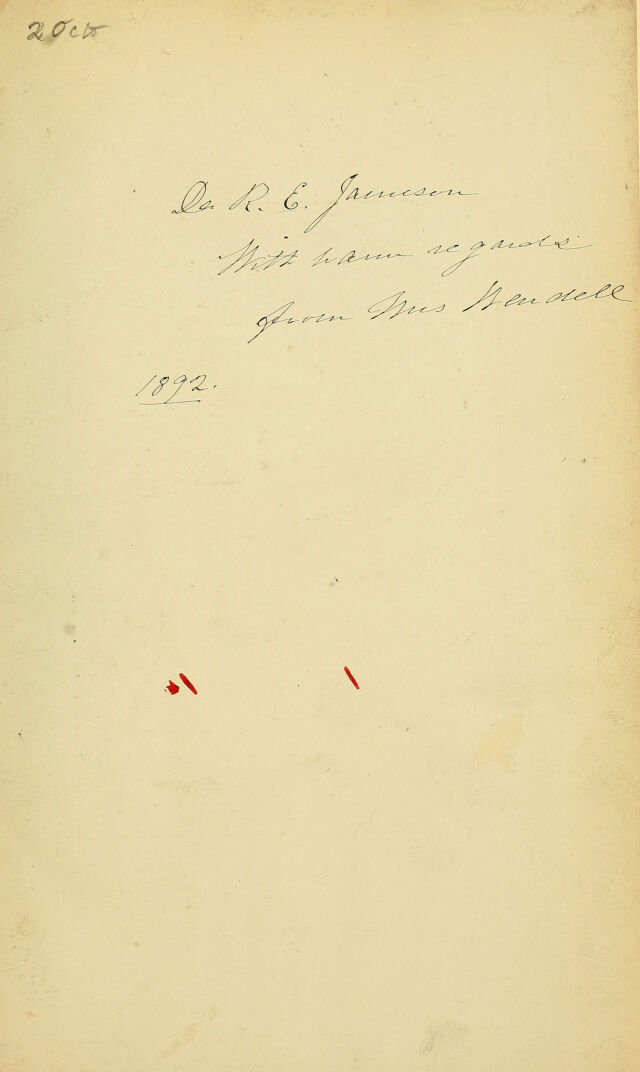 2 Octo
Dr R. E. Jameson
With warm regards
from Mrs Wendell
1892.